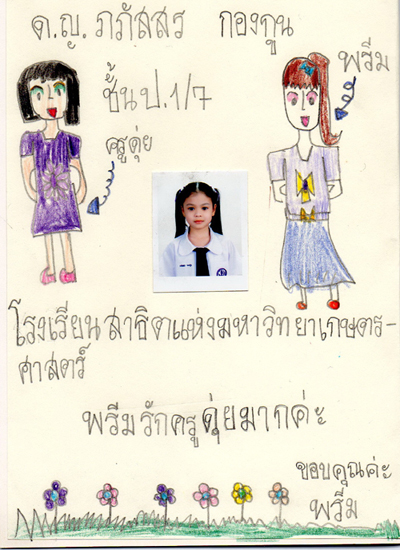 ด.ญ. ภภัสสร กองกูน
พรีม
ชั้น ป. 1/7
ครูตุ่ย
โรงเรียนสาธิตแห่งมหาวิทยาเกษตร-
ศาสตร์
พรีมรักครูตุ่ยมากค่ะ
ขอบคุณค่ะ
พรีม